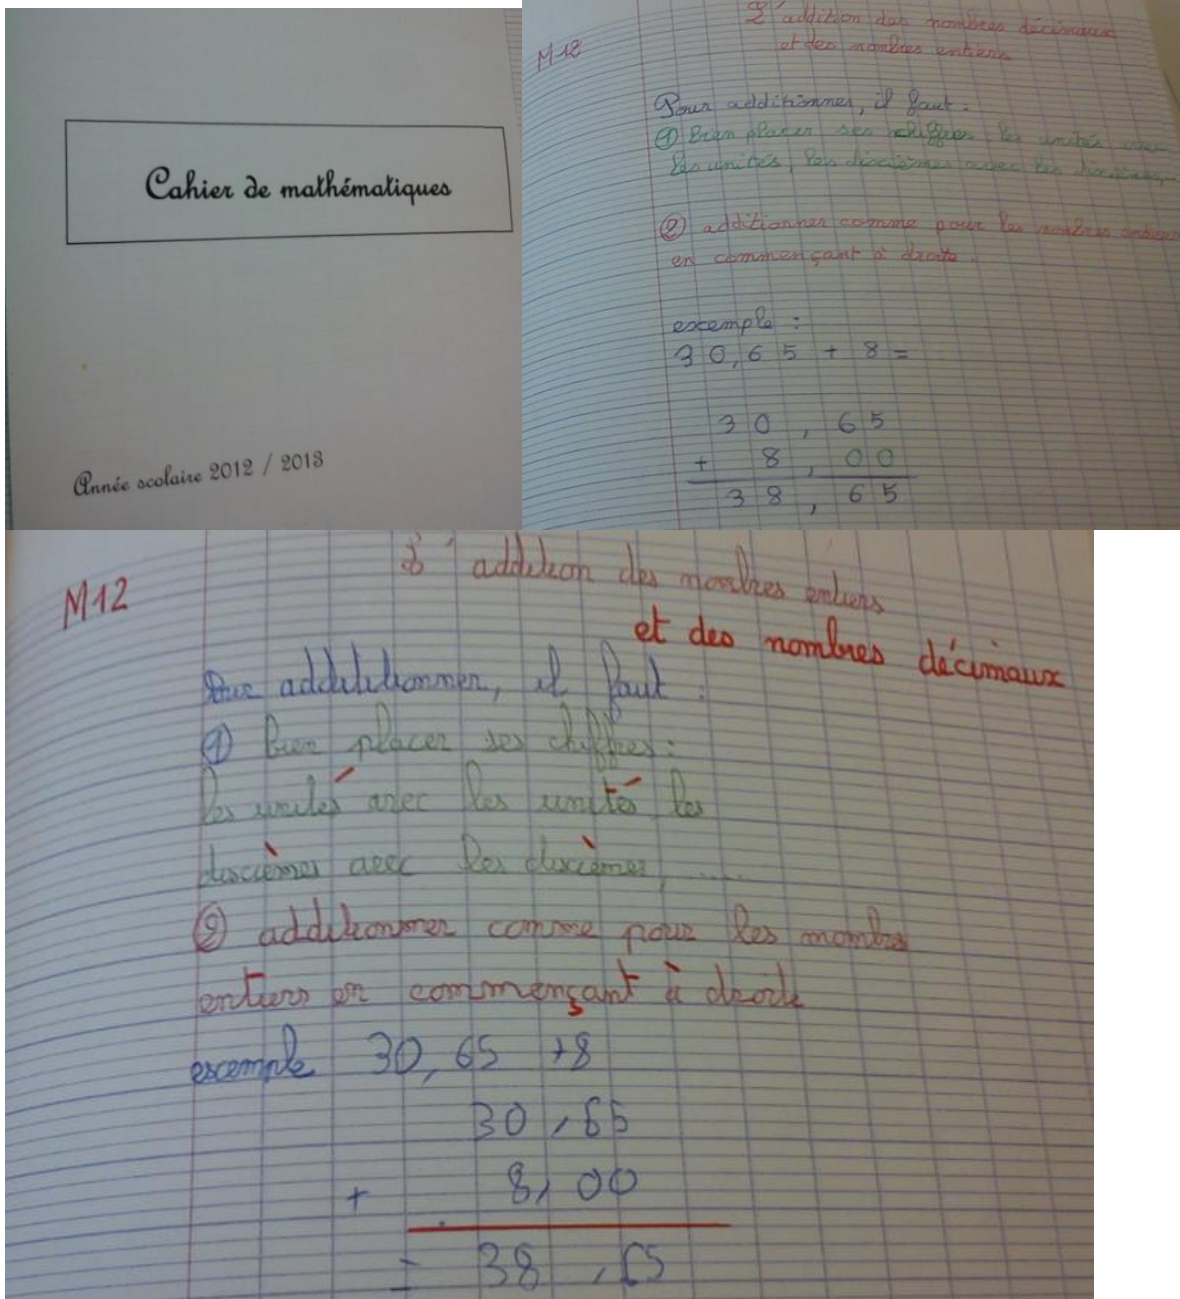 Cahier de mathématiques
Année scolaire 2012 / 2013
M12
L'addition des nombres décimaux
et des nombres entiers
Pour additionner, il faut :
① Bien placer ses chiffres les unités avec
les unités, les dixièmes avec les dixièmes,...
② additionner comme pour les nombres entiers
en commençant à droite.
exemple :
30,65 + 8 =
30,65
+ 8,00
38,65
M12
L'addition des nombres entiers
et des nombres décimaux
additionner, il faut :
① Bien placer ses chiffres :
les unités avec les unités les
dixièmes avec les dixièmes, .....
② additionner comme pour les nombres
entiers en commençant à droite
exemple 30,65 +8
30,65
+ 8,00
= 38,65